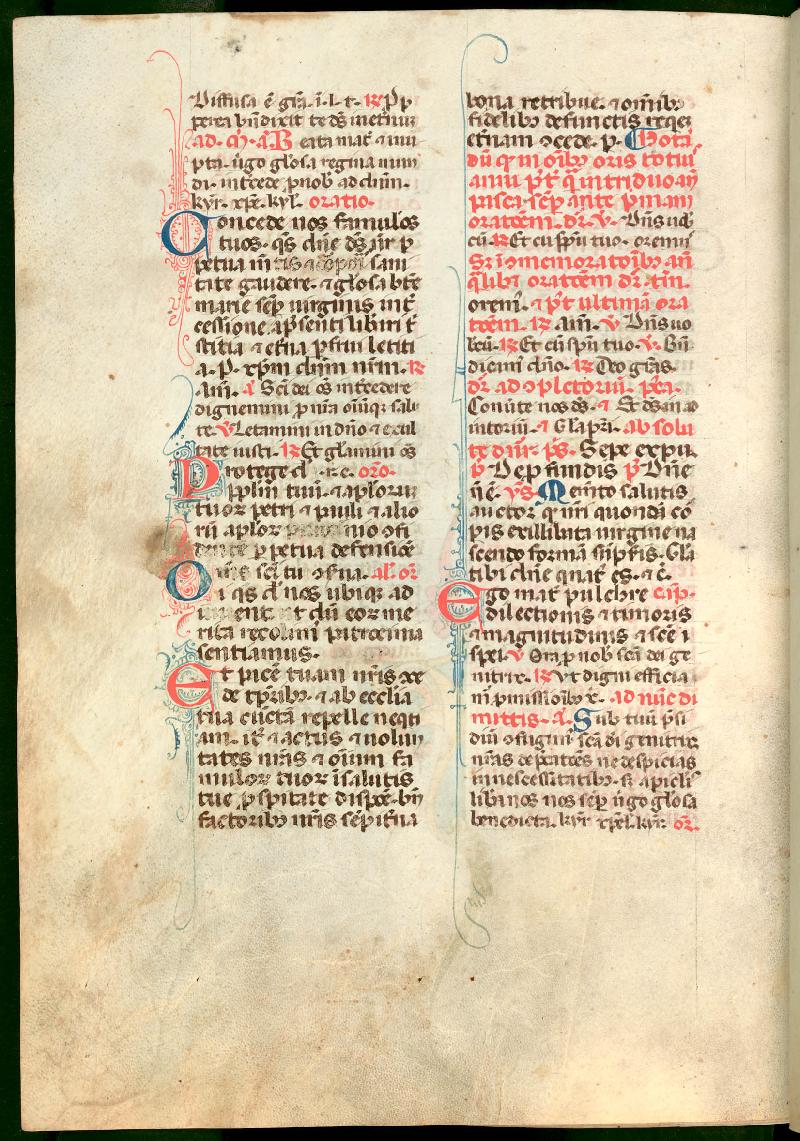 Diffusa ē gr̄a. ī. l. t. ℟ Pp
pterea bn̄dixit te ds̄ ineternum
ad. m̄. a. Beata mat̄ & innu
pta. ūgo gl̄osa regina mun
di. intcede p nob̄ ad dn̄m.
kyr̄. xp̄e. kyl̄. oratio.
Concede nos famulos
tuos. qs̄ dn̄e ds̄ nr̄ p
petua mētis & corpor̄ sani
tate gaudere. & gl̄osa bt̄e
marie sēp virginis int̄
cessione. a p̄senti libari t̄
sticia & et̄na p frui letiti
a. p. xp̄m dn̄m nr̄m. ℟
Am̄. a. Sc̄i dei om̄s intcedere
dignemini p nr̄a oīuqꝫ salu
te. ℣ Letamini in dn̄o & exul
tate iusti. ℟ Et gl̄amini om̄s
Protege d . . r. c. oro.
pplm̄ tuū. & apl̄oruꝫ
tuoꝝ petri & pauli & alio
rū apl̄oꝝ patrocinio ɔfi
dente p petua defensioē
Om̄s sc̄i tu ɔserua. al. or̄
i qs̄ d̄ nos ubiqꝫ ad
iuuent. ut dū eoꝝ me
rita recolim̄ patrocinia
sentiamus.
Et pacē tuam nr̄is ɔce
de tp̄ribꝫ. & ab ecclia
tua cūctā repelle neqti
am. it̄ & actus & uolun
tates nr̄as & oīum fa
muloꝝ tuoꝝ ī salutis
tue p spitate dispōe. bn̄
factoribꝫ nr̄is sēpit̄na
bona retribue. & om̄ibꝫ
fidelibꝫ defunctis reqē
et̄nam ɔcede. p. Nota
dū qꝫ in oībꝫ oris totiu
anni p̄t q̄ in triduo an̄
pasce. sēp ante p̄mam
orat̄oem. dr̄. ℣. Dn̄s uob
cū. ℟ Et cū sp̄u tuo. oremu
Sꝫ ī ɔmemorat̄oībꝫ an̄
q̄libꝫ orat̄oem dr̄. tm̄.
orem̄. & p̄t ultimā ora
toēm. ℟ Am̄. ℣ Dn̄s uo
bcū. ℟ Et cū sp̄u tuo. ℣. Bn̄
dicam̄ dn̄o. ℟ Deo grās.
dr̄ ad ɔpletoriū. pr̄a.
Conūte nos ds̄. & Ds̄ in ad
iutoriū. & Gl̄a pr̄i. ab solu
te dn̄r. ps̄. Sepe expu.
p̄ De p fundis p̄ Dn̄e
n̄ ē. ys̄ Memto salutis
auctor qꝫ nr̄i quondā cor
pis ex illibata virgine na
scendo formā sūpsis. Gl̄a
tibi dn̄e qui nat̄ es. & c̄.
Ego mat̄ pulchre cap̄.
dilectionis & timoris
& magnitudinis & sc̄e
spei. ℣ Ora p nob sc̄a dei ge
nitrix. ℟ Ut digni efficia
m̄ p̄missioībꝫ x̄. ad nūc di
mittis. a. Sub tuū p̄si
diū ɔfugim̄ sc̄a di genitrix
nr̄as dep̄catōes ne despicias
in necessitatibꝫ. sꝫ a picl̄is
liba nos sēp ūgo gl̄osa
benedicta. kyr̄ xp̄el. kyr̄. or̄.